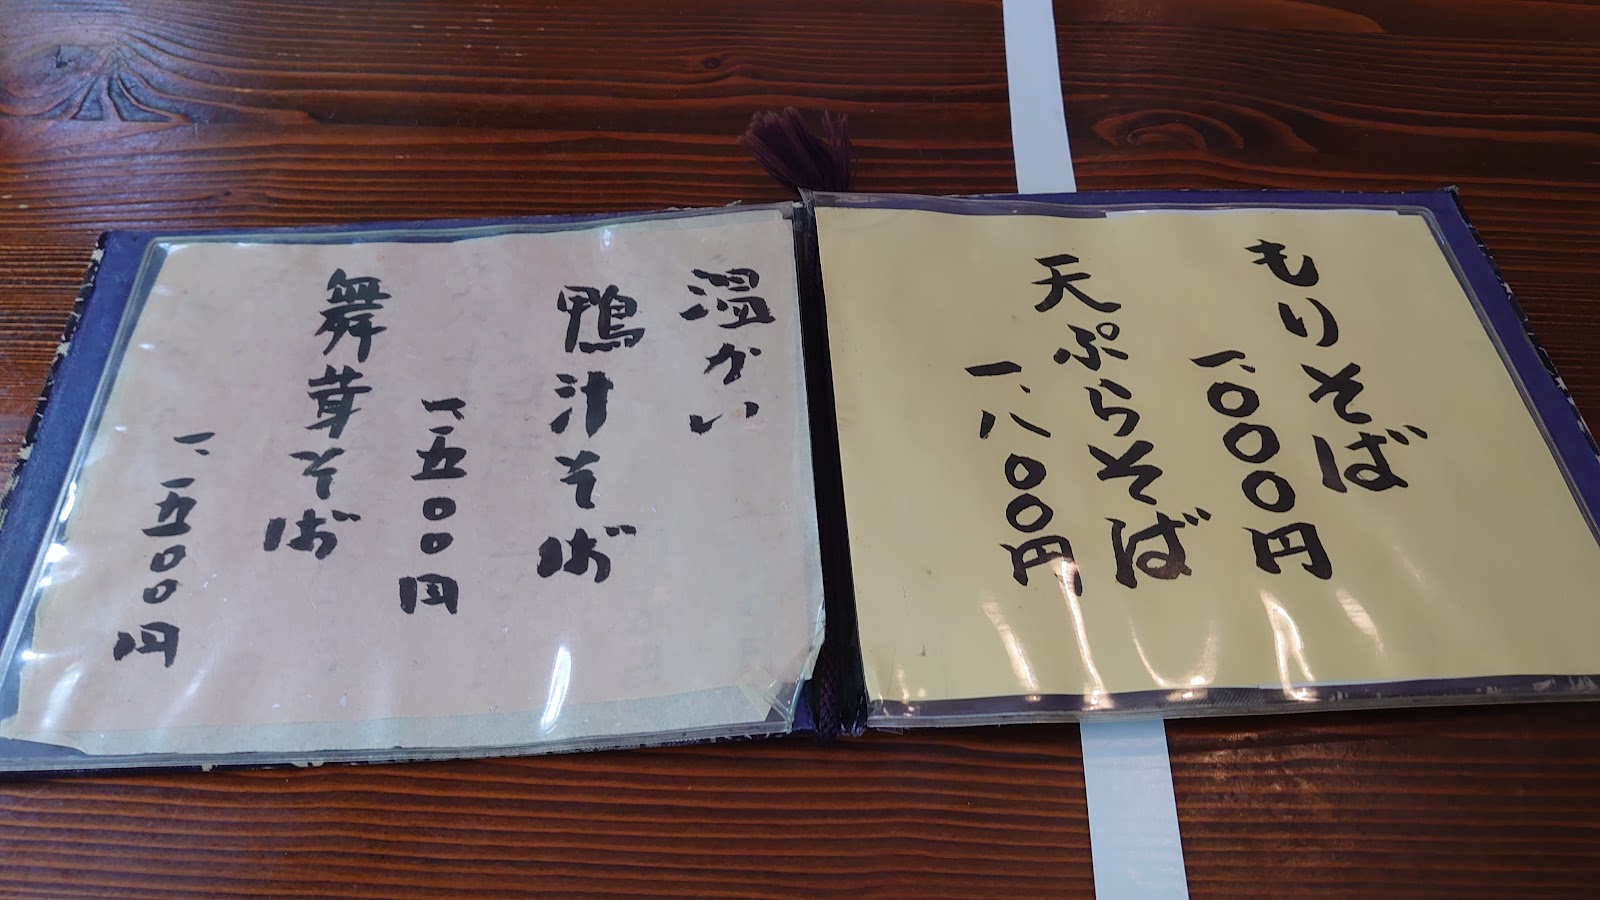 もりそば
一、〇〇〇円
天ぷらそば
一、八〇〇円
温かい
鴨汁そば
一、五〇〇円
舞茸そば
一、五〇〇円